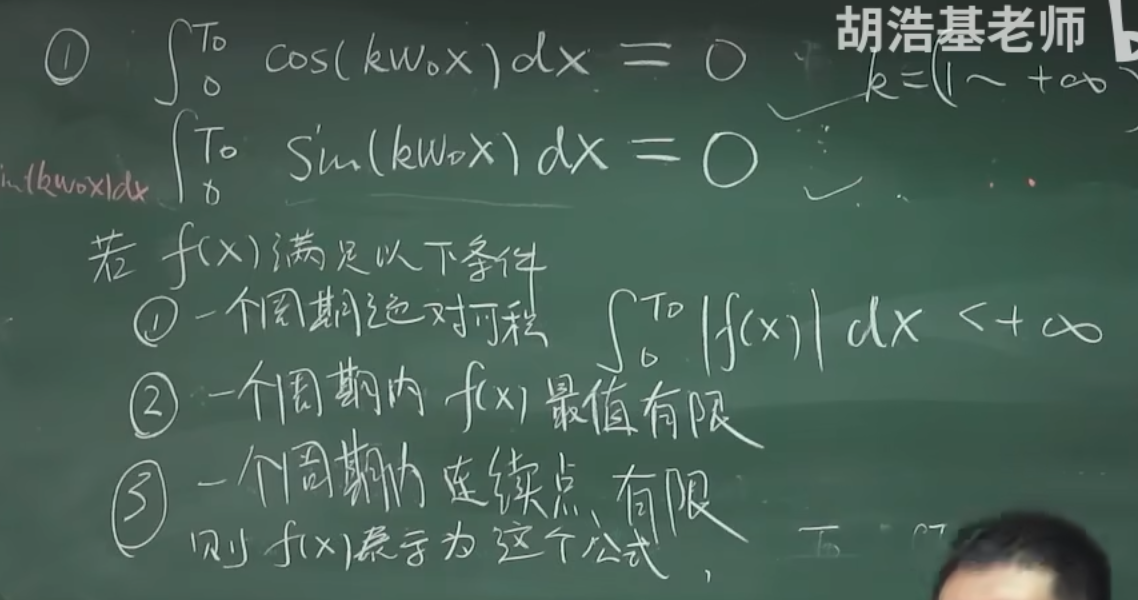 胡浩基老师
① ∫₀^T₀ cos(kw₀x)dx = 0
k=(1~+∞)
∫₀^T₀ sin(kw₀x)dx = 0
in(kw₀x)dx
若 f(x)满足以下条件
① 一个周期绝对可积 ∫₀^T₀ |f(x)| dx < +∞
② 一个周期内 f(x) 最值有限
③ 一个周期内 连续点 有限
则 f(x)表示为这个公式,